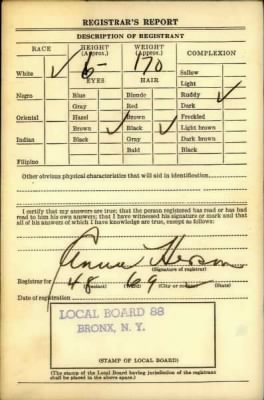 REGISTRAR'S REPORT
DESCRIPTION OF REGISTRANT
RACE HEIGHT (Approx.) WEIGHT (Approx.) COMPLEXION
White ✓ 6- 170 Sallow
EYES HAIR Light
Negro Blue Blonde Ruddy ✓
Gray Red Dark
Oriental Hazel Brown Freckled
Brown ✓ Black ✓ Light brown
Indian Black Gray Dark brown
Bald Black
Filipino
Other obvious physical characteristics that will aid in identification
I certify that my answers are true; that the person registered has read or has had
read to him his own answers; that I have witnessed his signature or mark and that
all of his answers of which I have knowledge are true, except as follows:
Anna
(Signature of registrar)
Registrar for 48 69
(Precinct) (Ward) (City or county) (State)
Date of registration
LOCAL BOARD 88
BRONX, N. Y.
(STAMP OF LOCAL BOARD)
(The stamp of the Local Board having jurisdiction of the registrant
shall be placed in the above space.)